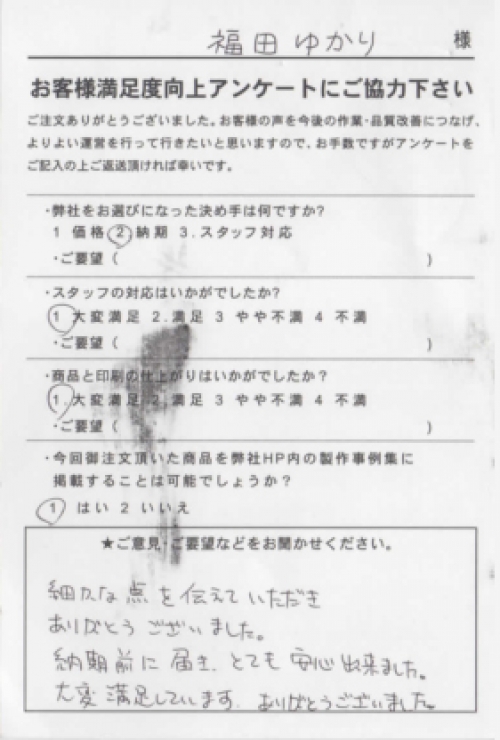 福田ゆかり 様
お客様満足度向上アンケートにご協力下さい
ご注文ありがとうございました。お客様の声を今後の作業・品質改善につなげ、
よりよい運営を行って行きたいと思いますので、お手数ですがアンケートを
ご記入の上ご返送頂ければ幸いです。
・弊社をお選びになった決め手は何ですか?
1 価格 2 納期 3.スタッフ対応
・ご要望( )
・スタッフの対応はいかがでしたか?
1 大変満足 2.満足 3 やや不満 4 不満
・ご要望( )
・商品と印刷の仕上がりはいかがでしたか?
1.大変満足 2.満足 3 やや不満 4 不満
・ご要望( )
・今回御注文頂いた商品を弊社HP内の製作事例集に
掲載することは可能でしょうか?
1 はい 2 いいえ
★ご意見・ご要望などをお聞かせください。
細かな点を伝えていただき
ありがとうございました。
納期前に届き、とても安心出来ました。
大変満足しています。ありがとうございました。